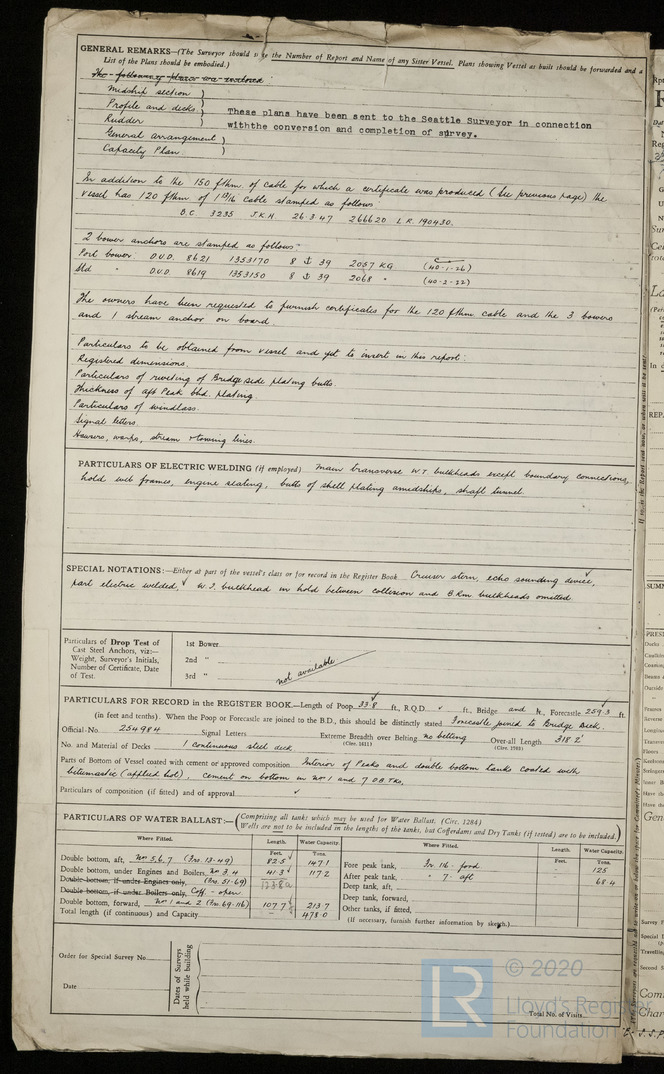 GENERAL REMARKS—(The Surveyor should give the Number of Report and Name of any Sister Vessel. Plans showing Vessel as built should be forwarded and a
List of the Plans should be embodied.)
The following plans was enclosed
Midship section )
Profile and decks )
Rudder )
General arrangement )
Capacity Plan )
These plans have been sent to the Seattle Surveyor in connection
withthe conversion and completion of survey.
In addition to the 150 fthm. of cable for which a certificate was produced (see previous page) the
vessel has 120 fthm of 1 13/16 cable stamped as follows
B.C. 3235 J.K.H. 26.3.47 266620 L.R. 190430.
2 bower anchors are stamped as follows:-
Port bower: O.V.D. 8621 1353170 8 ⚓ 39 2057 KG (40-1-26)
Stbd " O.V.D. 8619 1353150 8 ⚓ 39 2068 " (40-2-22)
The owners have been requested to furnish certificates for the 120 fthm cable and the 3 bowers
and 1 stream anchor on board.
Particulars to be obtained from vessel and yet to insert in this report:
Registered dimensions.
Particulars of riveting of Bridge side plating butts.
Thickness of aft Peak bhd. plating.
Particulars of windlass.
Signal letters.
Hawsers, warps, stream & towing lines.
PARTICULARS OF ELECTRIC WELDING (if employed) Main transverse W.T. bulkheads except boundary connections,
hold web frames, engine seating, butts of shell plating amidships, shaft tunnel.
SPECIAL NOTATIONS:—Either as part of the vessel's class or for record in the Register Book Cruiser stern, echo sounding device,
part electric welded, W.T. bulkhead in hold between collision and B.Rm bulkheads omitted
Particulars of Drop Test of
Cast Steel Anchors, viz:—
Weight, Surveyor's Initials,
Number of Certificate, Date
of Test.
1st Bower
2nd "
3rd "
not available
PARTICULARS FOR RECORD in the REGISTER BOOK.—Length of Poop 33.8 ft., R.Q.D. ft., Bridge and ft., Forecastle 259.3 ft.
(in feet and tenths). When the Poop or Forecastle are joined to the B.D., this should be distinctly stated Forecastle joined to Bridge Deck.
Official No. 254984 Signal Letters Extreme Breadth over Belting No belting Over-all Length 318.2'
(Circ. 1611)
No. and Material of Decks 1 continuous steel deck
Parts of Bottom of Vessel coated with cement or approved composition Interior of Peaks and double bottom tanks coated with
bitumastic (applied hot), cement on bottom in No 1 and 7 D.B. Tks.
Particulars of composition (if fitted) and of approval
PARTICULARS OF WATER BALLAST:—(Comprising all tanks which may be used for Water Ballast. (Circ. 1284)
Wells are not to be included in the lengths of the tanks, but Cofferdams and Dry Tanks (if tested) are to be included.)
Where Fitted. Length. Water Capacity. Where Fitted. Length. Water Capacity.
Feet. Tons. Feet. Tons.
Double bottom, aft, Nos 5,6,7 (Frs. 13-49) 82.5 147.1
Double bottom, under Engines and Boilers, No 3 4 (Frs. 51-69) 41.3 117.2
Double bottom, if under Engines only,
Double bottom, if under Boilers only, Coff - open
Double bottom, forward, No 1 and 2 (Frs. 69-116) 107.7 213.7
Total length (if continuous) and Capacity 478.0
Fore peak tank, Fr. 116 - ford 125
After peak tank, " 7 - aft 68.4
Deep tank, aft,
Deep tank, forward,
Other tanks, if fitted,
(If necessary, furnish further information by sketch.)
Order for Special Survey No.
Date
Dates of Surveys
held while building
Total No. of Visits
© 2020
Lloyd's Register
Foundation